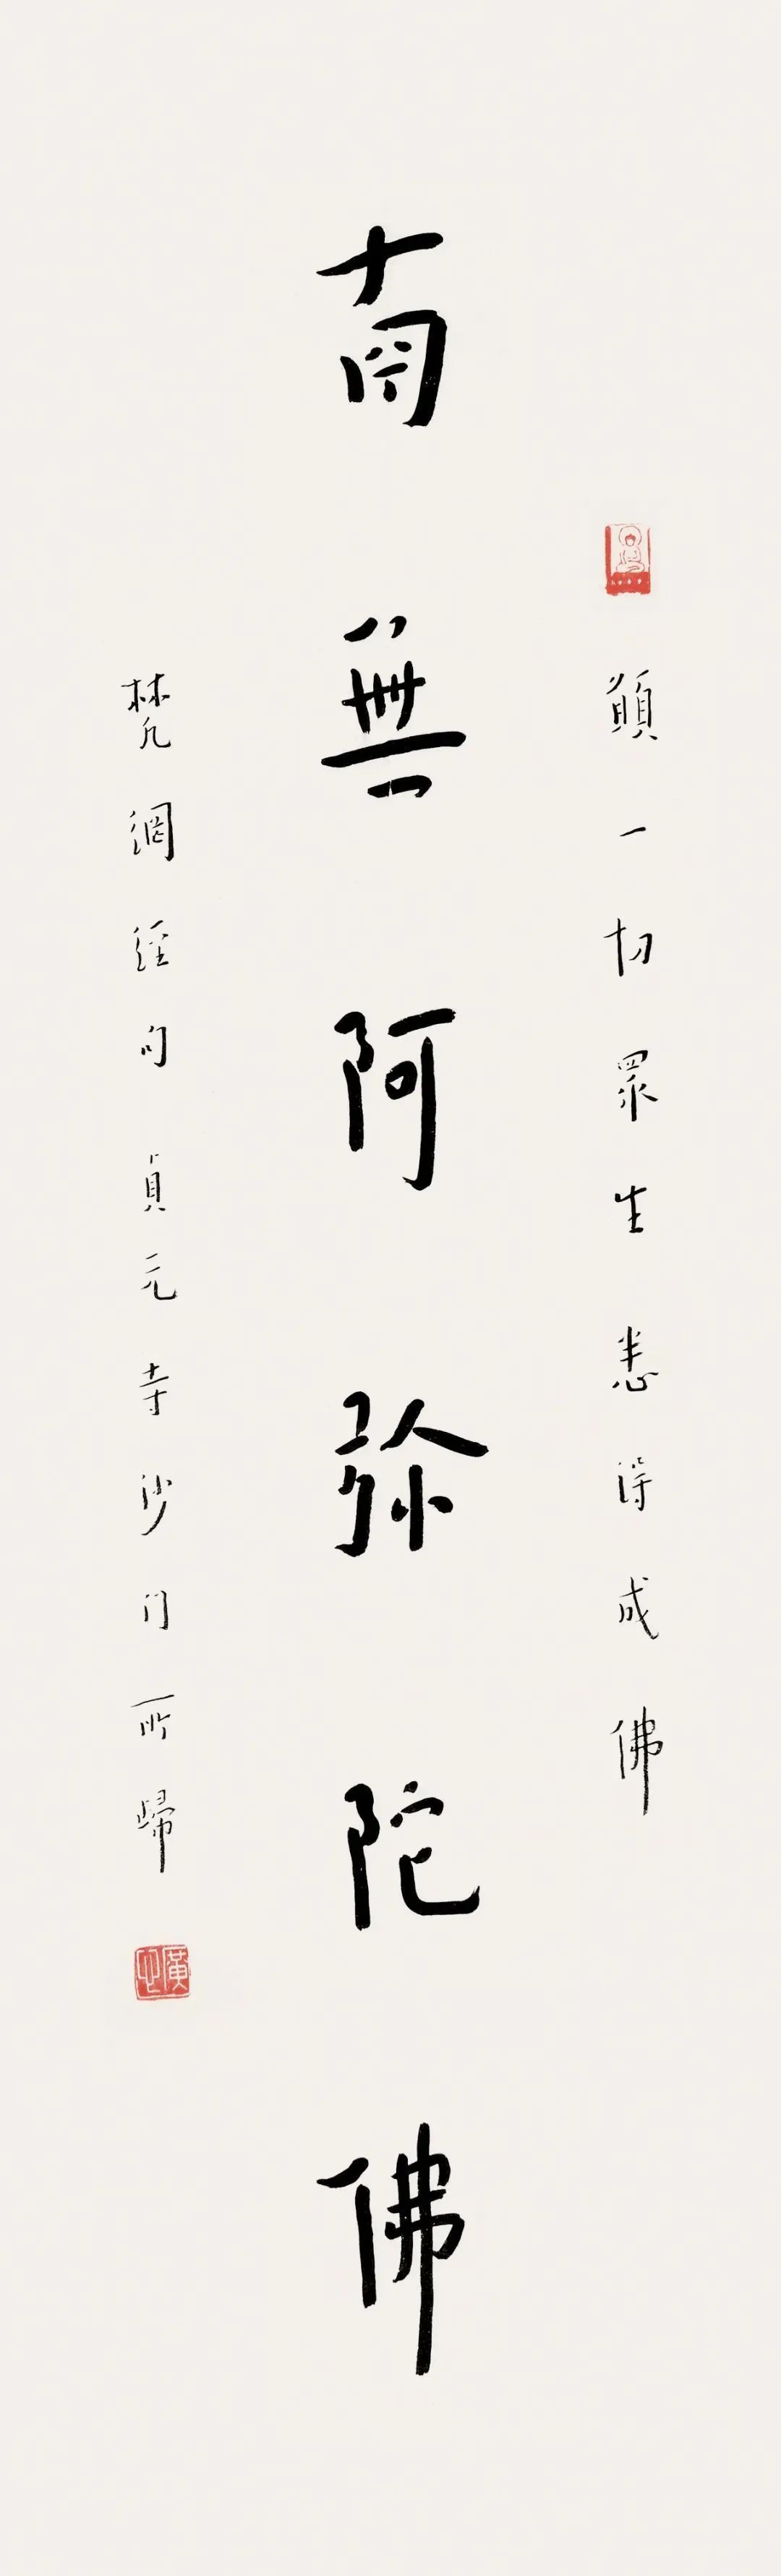 願一切眾生悉得成佛
南無阿弥陀佛
梵網經句貞元寺沙门所歸
廣心